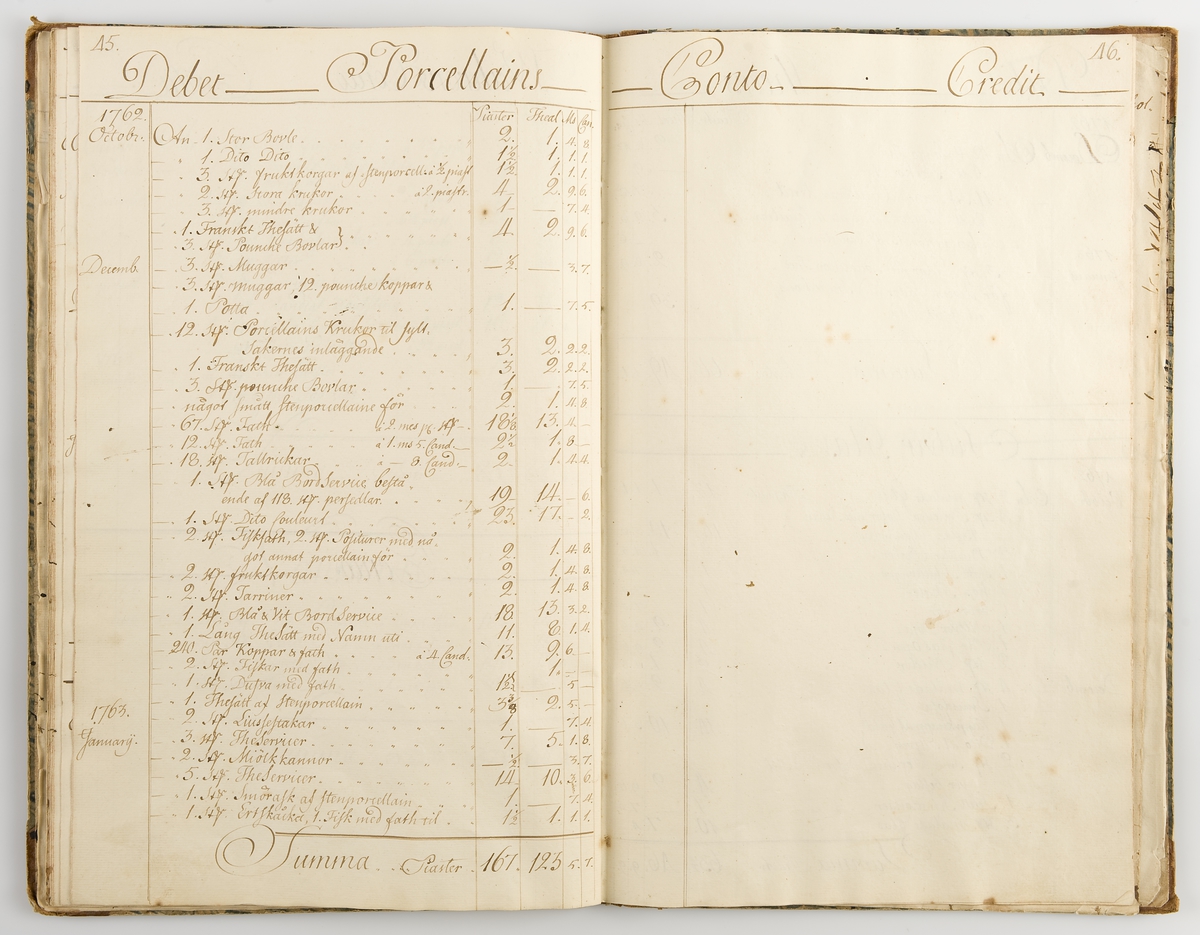 45.
Debet Porcellains
1762. Piaster Theal Ms Can.
Octobr. An 1. Stor Bovle 2. 1. 4. 8.
1. Dito Dito 1½ 1. 1. 1.
3. Stÿ. fruktkorgar af Stenporcell: a ½ piast 1½ 1. 1. 1.
2. Stÿ. Stora krukor à 2. piastr. 4. 2. 9. 6.
3. Stÿ. mindre krukor 1. — 7. 4.
1. Franskt Thesätt & } 4. 2. 9. 6.
3. Stÿ. Pounche Bovlar
Decemb. 3. Stÿ. Muggar — ½ — 3. 7.
3. Stÿ. Muggar, 12. pounche koppar &
1. Potta 1. — 7. 5.
12. Stÿ. Porcellains Krukor til Sylt,
Sakernes inläggande 3. 2. 2. 2.
1. Franskt Thesätt 3. 2. 2. 2.
3. Stÿ. pounche Bovlar 1. — 7. 5.
något smått Stenporcellaine för 2. 1. 4. 8.
67. Stÿ. Fath à 2. mes pr. Stÿ 18⅛ 13. 4. —
12. Stÿ. Fath à 1. ms 5. Cand. 2½ 1. 8. —
18. Stÿ. Tallrickar à — 8. Cand. 2. 1. 4. 4.
1. Stÿ. Blå Bord Service, bestå,
ende af 118. Stÿ. persedlar 19. 14. — 6.
1. Stÿ. Dito Couleurt 23. 17. — 2.
2. Stÿ. Fiskfath, 2. Stÿ. Positurer med nå,
got annat porcellain för 2. 1. 4. 8.
2. Stÿ. fruktkorgar 2. 1. 4. 8.
2. Stÿ. Tarriner 2. 1. 4. 8.
1. Stÿ. Blå & Vit Bord Service 18. 13. 3. 2.
1. Lång Thesätt med Namn uti 11. 8. 1. 4.
240. Par Koppar & fath à 4 Cand. 13. 9. 6. —
2. Stÿ. Fiskar med fath 1. —
1. Stÿ. Dufva med fath — 5 —
1. Thesätt af Stenporcellain 3⅜ 2. 5. —
1763. 2. Stÿ. Liusestakar 1. — 7. 4.
Januarÿ. 3. Stÿ. The Servicer 7. 5. 1. 8.
2. Stÿ. Miölkkannor — ½ — 3. 7.
5. Stÿ. The Servicer 14. 10. 3. 6.
1. Stÿ. Smörask af Stenporcellain 1. — 7. 4.
1. Stÿ. Ertskåcka, 1. Fisk med fath til 1½ 1. 1. 1.
Summa Piaster 167. 123 5. 7.
46.
Conto Credit